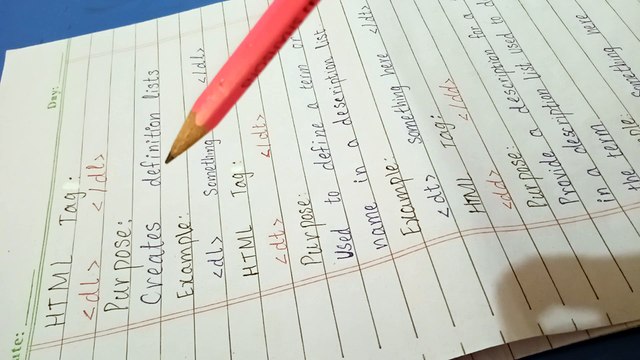 Day:
HTML Tag:
<dl> </dl>
Purpose:
Creates definition lists
Example:
<dl> Something </dl>
HTML Tag:
<dt> </dt>
Purpose:
Used to define a term or
name in a description list
Example:
<dt> something here </dt>
HTML Tag:
</dd> </dd>
Purpose:
Provide a description for a
description list used to
in a term
something here
the